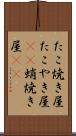 たこ焼き屋
たこやき屋
蛸焼き
屋